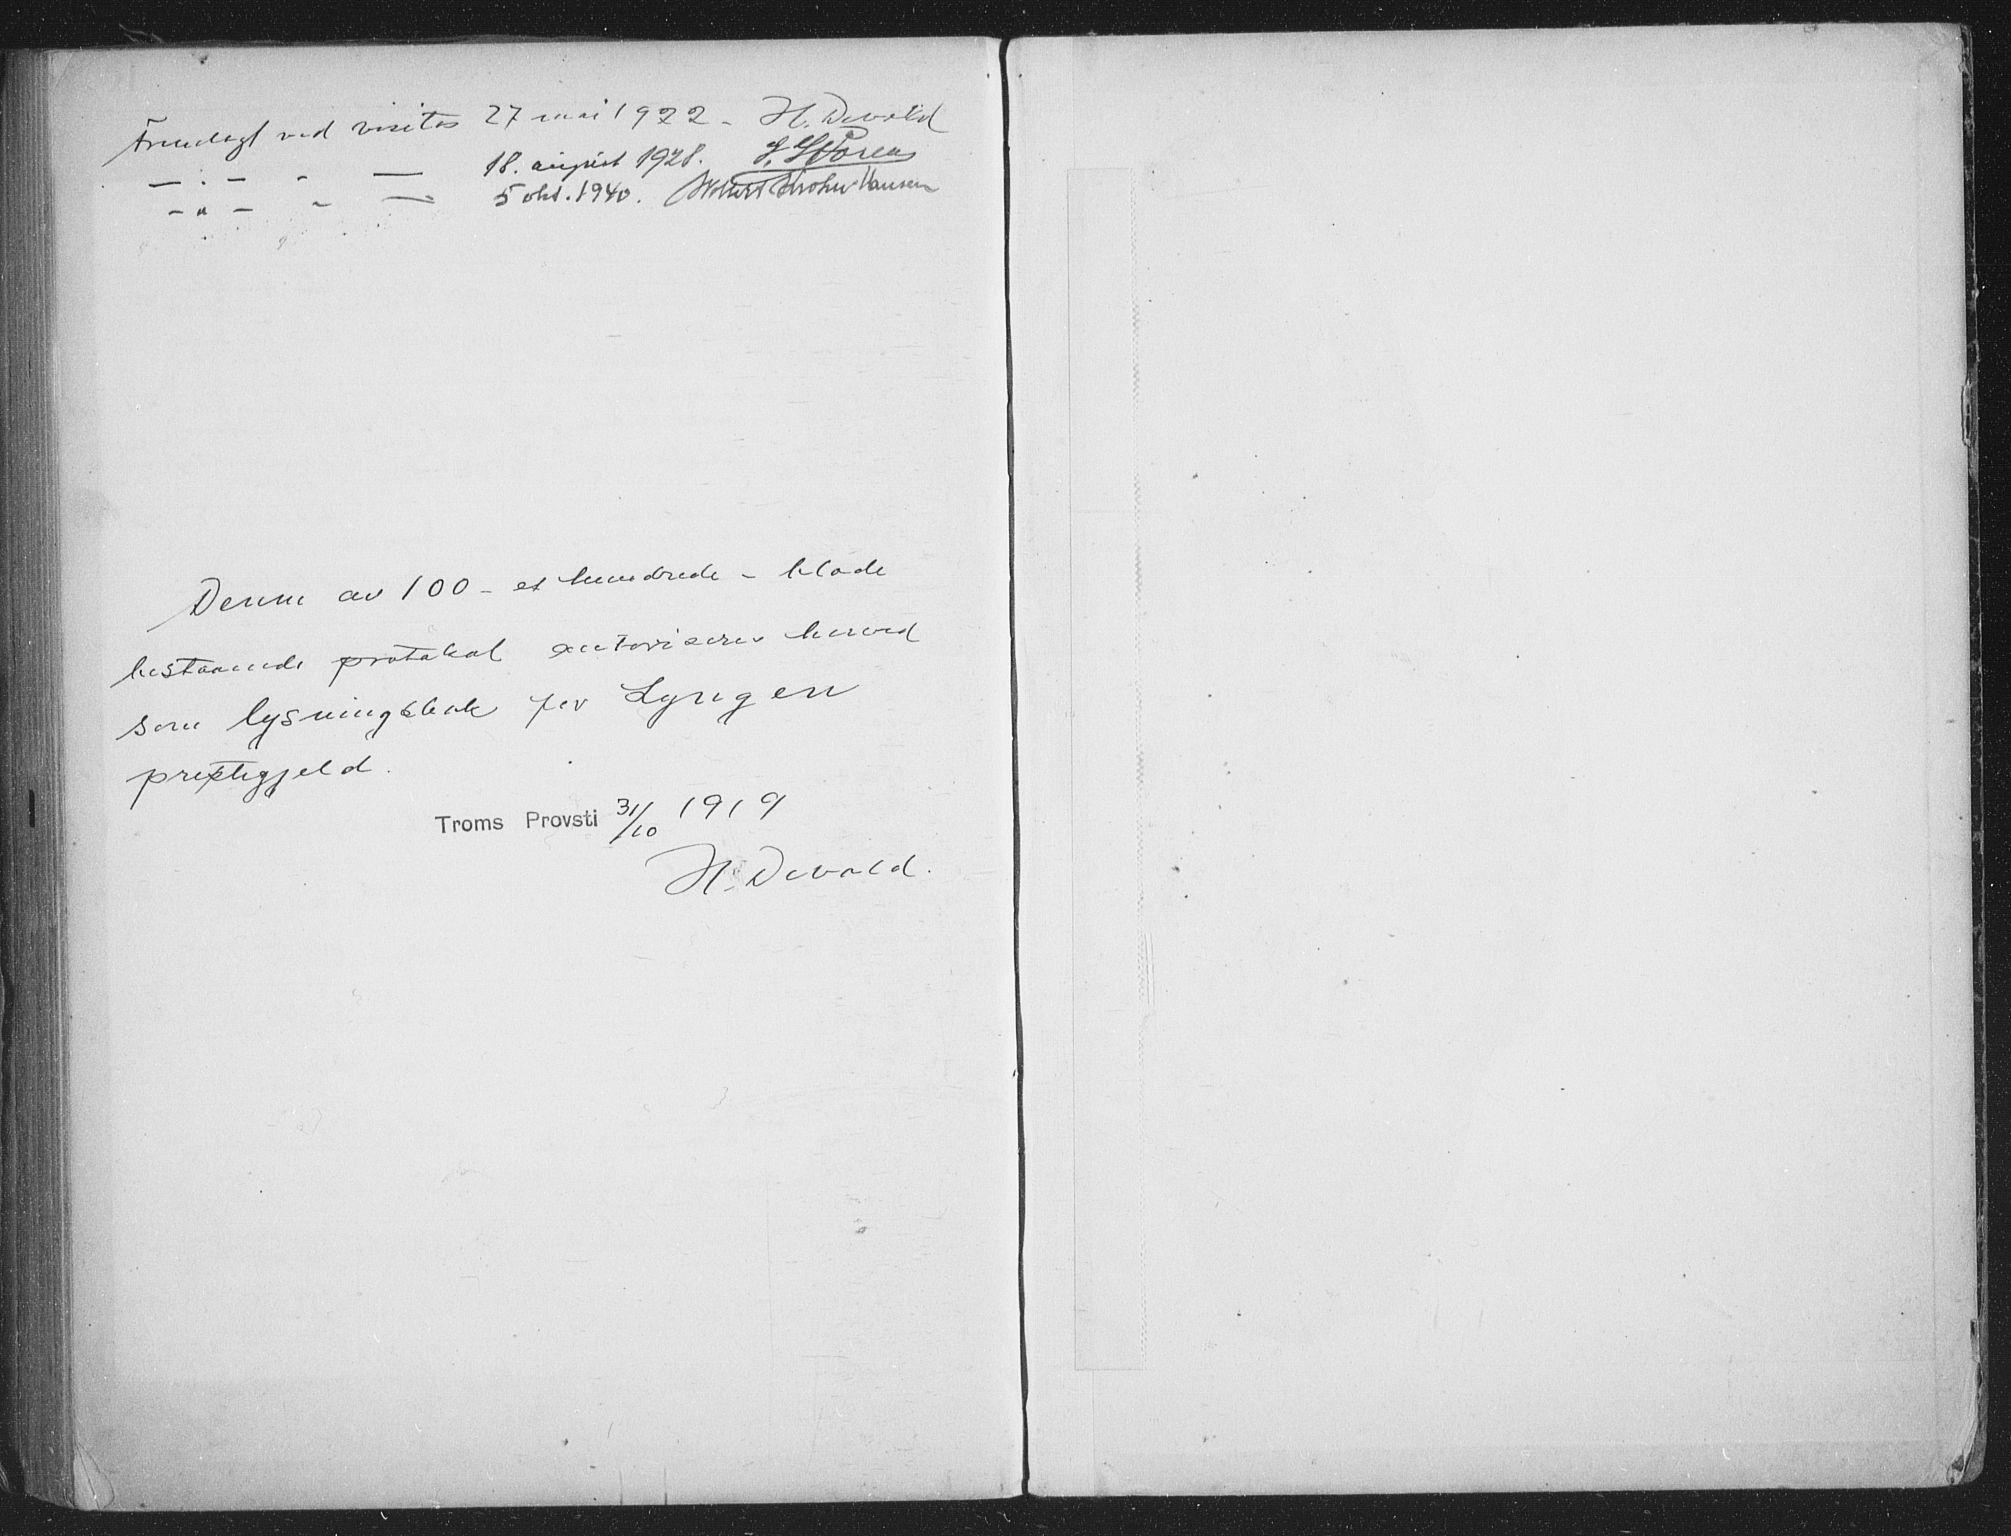 Fremlagt ved visitas 27 mai 1922 - H. Devold
— " — - — 18. august 1928. J. Støren
— " — - — 5 okt. 1940. Wollert Krohn-Hansen
Denne av 100 - et hundrede - blade
bestaaende protokol autoriseres herved
som lysningsbok for Lyngen
prestegjeld.
Troms Provsti 31/10 1919
H. Devold.